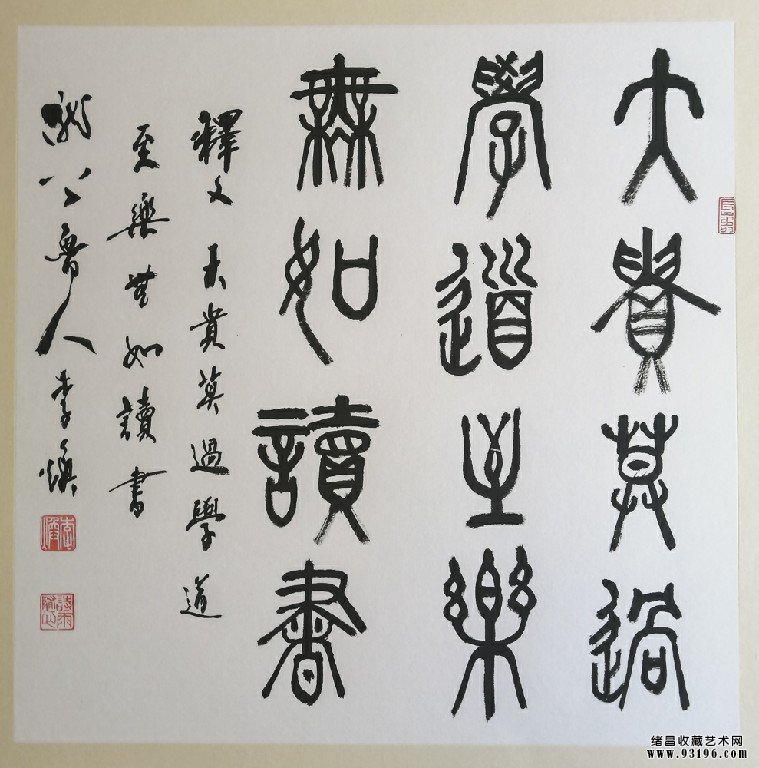 大貴莫過
學道至樂
無如讀書
釋文 大貴莫過學道
至樂無如讀書
公魯人李
绪昌收藏艺术网
www.93196.com